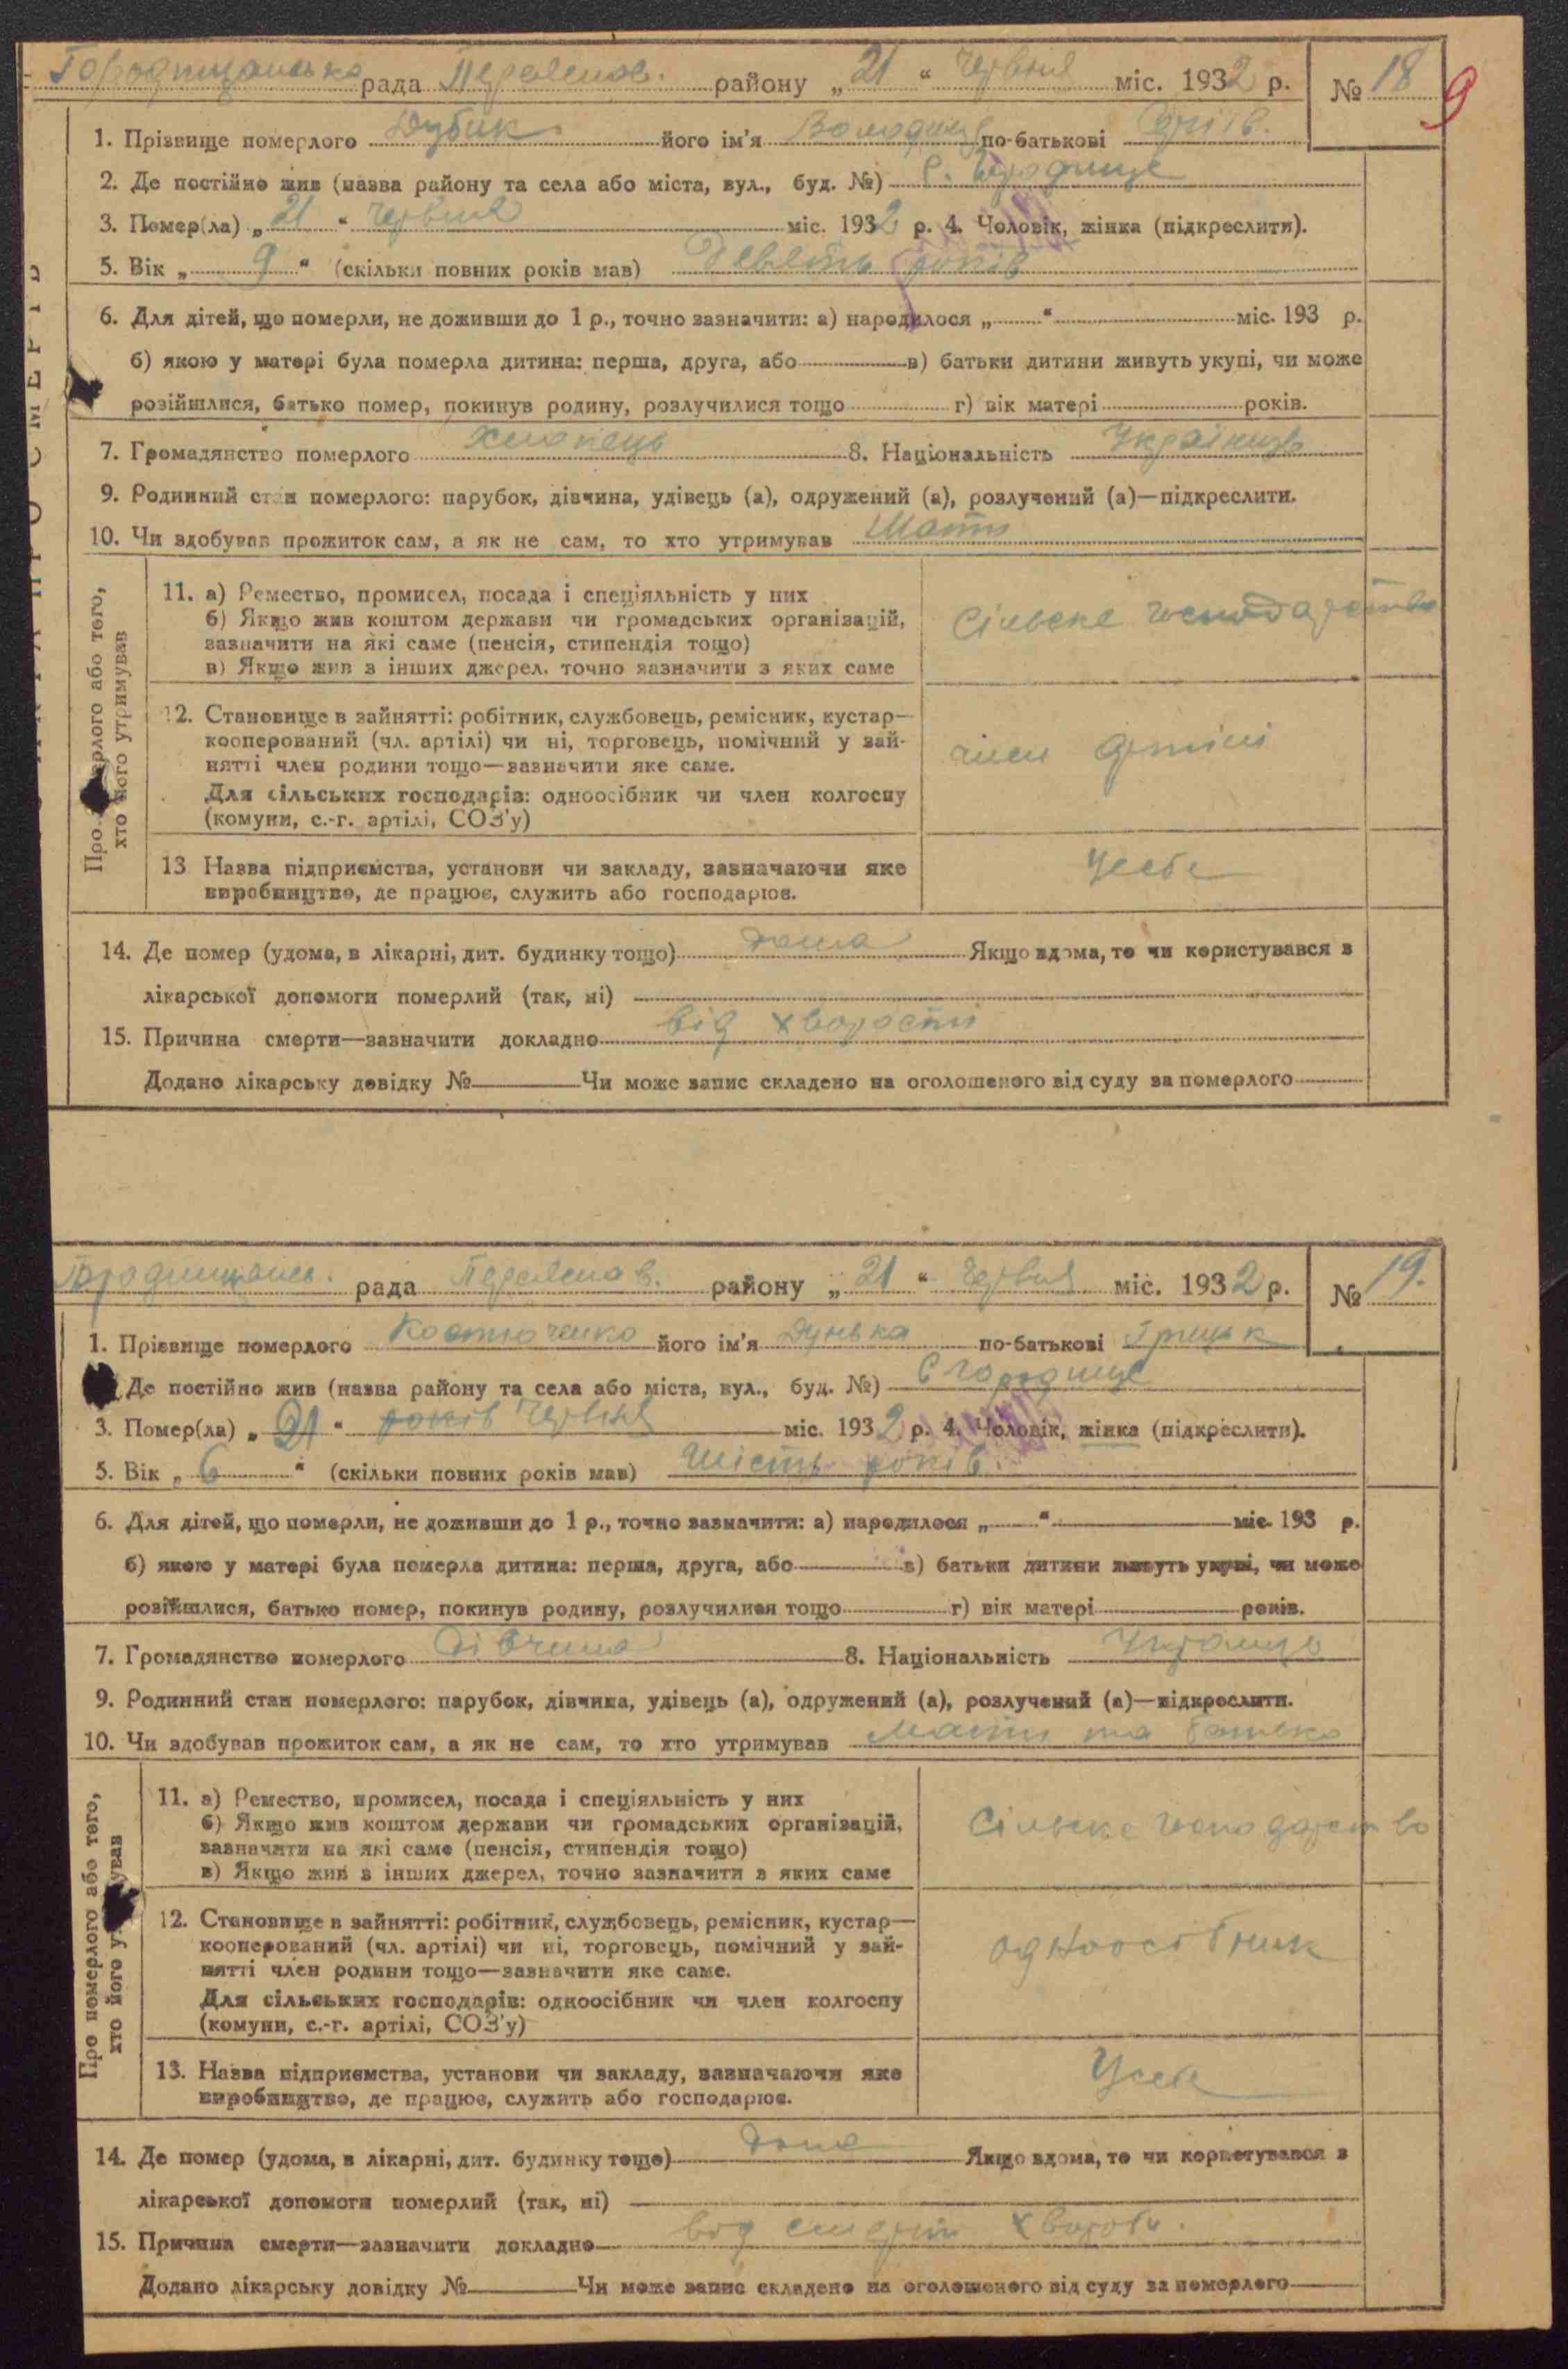 Городищанська рада Переяслов. району „21“ Червня міс. 1932 р. № 18 9
1. Прізвище померлого Дубик його ім'я Володимир по-батькові
2. Де постійно жив (назва району та села або міста, вул., буд. №) с. Городище
3. Помер(ла) „21“ червня міс. 1932 р. 4. Чоловік, жінка (підкреслити).
5. Вік „9“ (скільки повних років мав) Девять років
6. Для дітей, що померли, не доживши до 1 р., точно зазначити: а) народилося „ “ міс. 193 р.
б) якою у матері була померла дитина: перша, друга, або в) батьки дитини живуть укупі, чи може
розійшлися, батько помер, покинув родину, розлучилися тощо г) вік матері років.
7. Громадянство померлого хлопець 8. Національність Українець
9. Родинний стан померлого: парубок, дівчина, удівець (а), одружений (а), розлучений (а)—підкреслити.
10. Чи здобував прожиток сам, а як не сам, то хто утримував Мати
Про померлого або того,
хто його утримував
11. а) Ремество, промисел, посада і спеціяльність у них
б) Якщо жив коштом держави чи громадських організацій,
зазначити на які саме (пенсія, стипендія тощо)
в) Якщо жив з інших джерел, точно зазначити з яких саме
Сільське господарство
12. Становище в зайнятті: робітник, службовець, ремісник, кустар—
кооперований (чл. артілі) чи ні, торговець, помічний у зай-
нятті член родини тощо—зазначити яке саме.
Для сільських господарів: одноосібник чи член колгоспу
(комуни, с.-г. артілі, СОЗ'у)
член артілі
13 Назва підприємства, установи чи закладу, зазначаючи яке
виробництво, де працює, служить або господарює.
Усебе
14. Де помер (удома, в лікарні, дит. будинку тощо) дома Якщо вдома, то чи користувався з
лікарської допомоги померлий (так, ні)
15. Причина смерти—зазначити докладно від хворости
Додано лікарську довідку № Чи може запис складено на оголошеного від суду за померлого
Городищансь. рада Переяслов. району „21“ Червня міс. 1932 р. № 19.
1. Прізвище померлого Костюченко його ім'я Дунька по-батькові Грицьк
Де постійно жив (назва району та села або міста, вул., буд. №) С Городище
3. Помер(ла) „21“ років Червня міс. 1932 р. 4. Чоловік, жінка (підкреслити).
5. Вік „6“ (скільки повних років мав) Шість років.
6. Для дітей, що померли, не доживши до 1 р., точно зазначити: а) народилося „ “ міс. 193 р.
б) якою у матері була померла дитина: перша, друга, або в) батьки дитини живуть укупі, чи може
розійшлися, батько помер, покинув родину, розлучилися тощо г) вік матері років.
7. Громадянство померлого Дівчина 8. Національність
9. Родинний стан померлого: парубок, дівчина, удівець (а), одружений (а), розлучений (а)—підкреслити.
10. Чи здобував прожиток сам, а як не сам, то хто утримував Мати та батько
Про померлого або того,
хто його утримував
11. а) Ремество, промисел, посада і спеціяльність у них
б) Якщо жив коштом держави чи громадських організацій,
зазначити на які саме (пенсія, стипендія тощо)
в) Якщо жив з інших джерел, точно зазначити з яких саме
Сільське господарство
12. Становище в зайнятті: робітник, службовець, ремісник, кустар—
кооперований (чл. артілі) чи ні, торговець, помічний у зай-
нятті член родини тощо—зазначити яке саме.
Для сільських господарів: одноосібник чи член колгоспу
(комуни, с.-г. артілі, СОЗ'у)
одноосібник
13. Назва підприємства, установи чи закладу, зазначаючи яке
виробництво, де працює, служить або господарює.
Усебе
14. Де помер (удома, в лікарні, дит. будинку тощо) дома Якщо вдома, то чи користувався з
лікарської допомоги померлий (так, ні)
15. Причина смерти—зазначити докладно від смерти хвороби.
Додано лікарську довідку № Чи може запис складено на оголошеного від суду за померлого